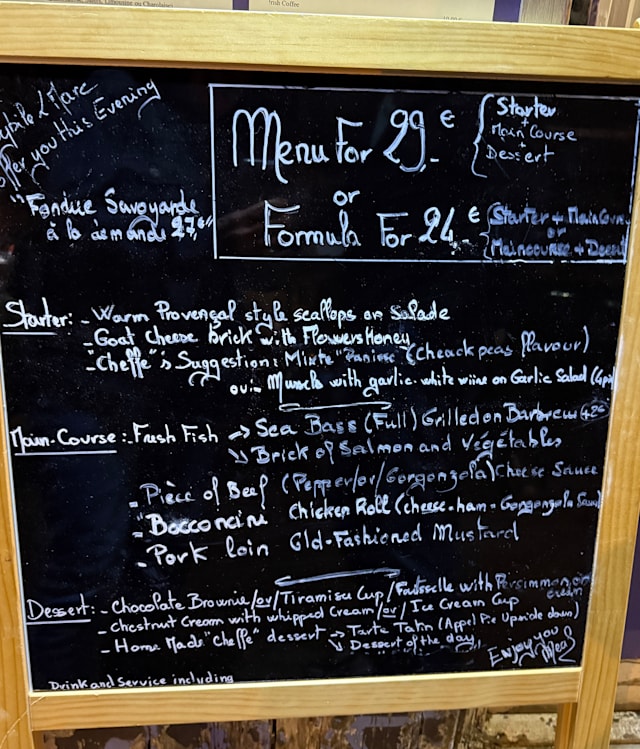 Irish Coffee
offer you this Evening
"Fondue Savoyarde
à la demande 27,€"
Menu For 29.€ { Starter
+
Main Course
+
Dessert
or
Formula For 24€ { Starter + Main Course
or
Maincourse + Dessert
Starter: - Warm Provençal style scallops on Salade
- Goat Cheese Brick with Flowers Honey
- "Cheffe"'s Suggestion: Mixte "Panisse" (cheackpeas flavour)
ou - Mussels with garlic-white wine on Garlic Salad
Main-Course: - Fresh Fish → Sea Bass (Full) Grilled on Barbecue +2€
↘ Brick of Salmon and Vegetables
- Pièce of Beef (Pepper/or/Gorgonzola) Cheese Sauce
- "Bocconcini Chicken Roll (cheese-ham-Gorgonzola Sauce)
- Pork loin Old-Fashioned Mustard
Dessert: - Chocolate Brownie/or/Tiramisu Cup/Faisselle with Persimmon cream
- Chestnut Cream with whipped Cream/or/Ice Cream Cup
- Home Made "Cheffe" dessert → Tarte Tatin (Appel Pie Upside down)
↘ Dessert of the day
Enjoy you
Meal
Drink and Service including